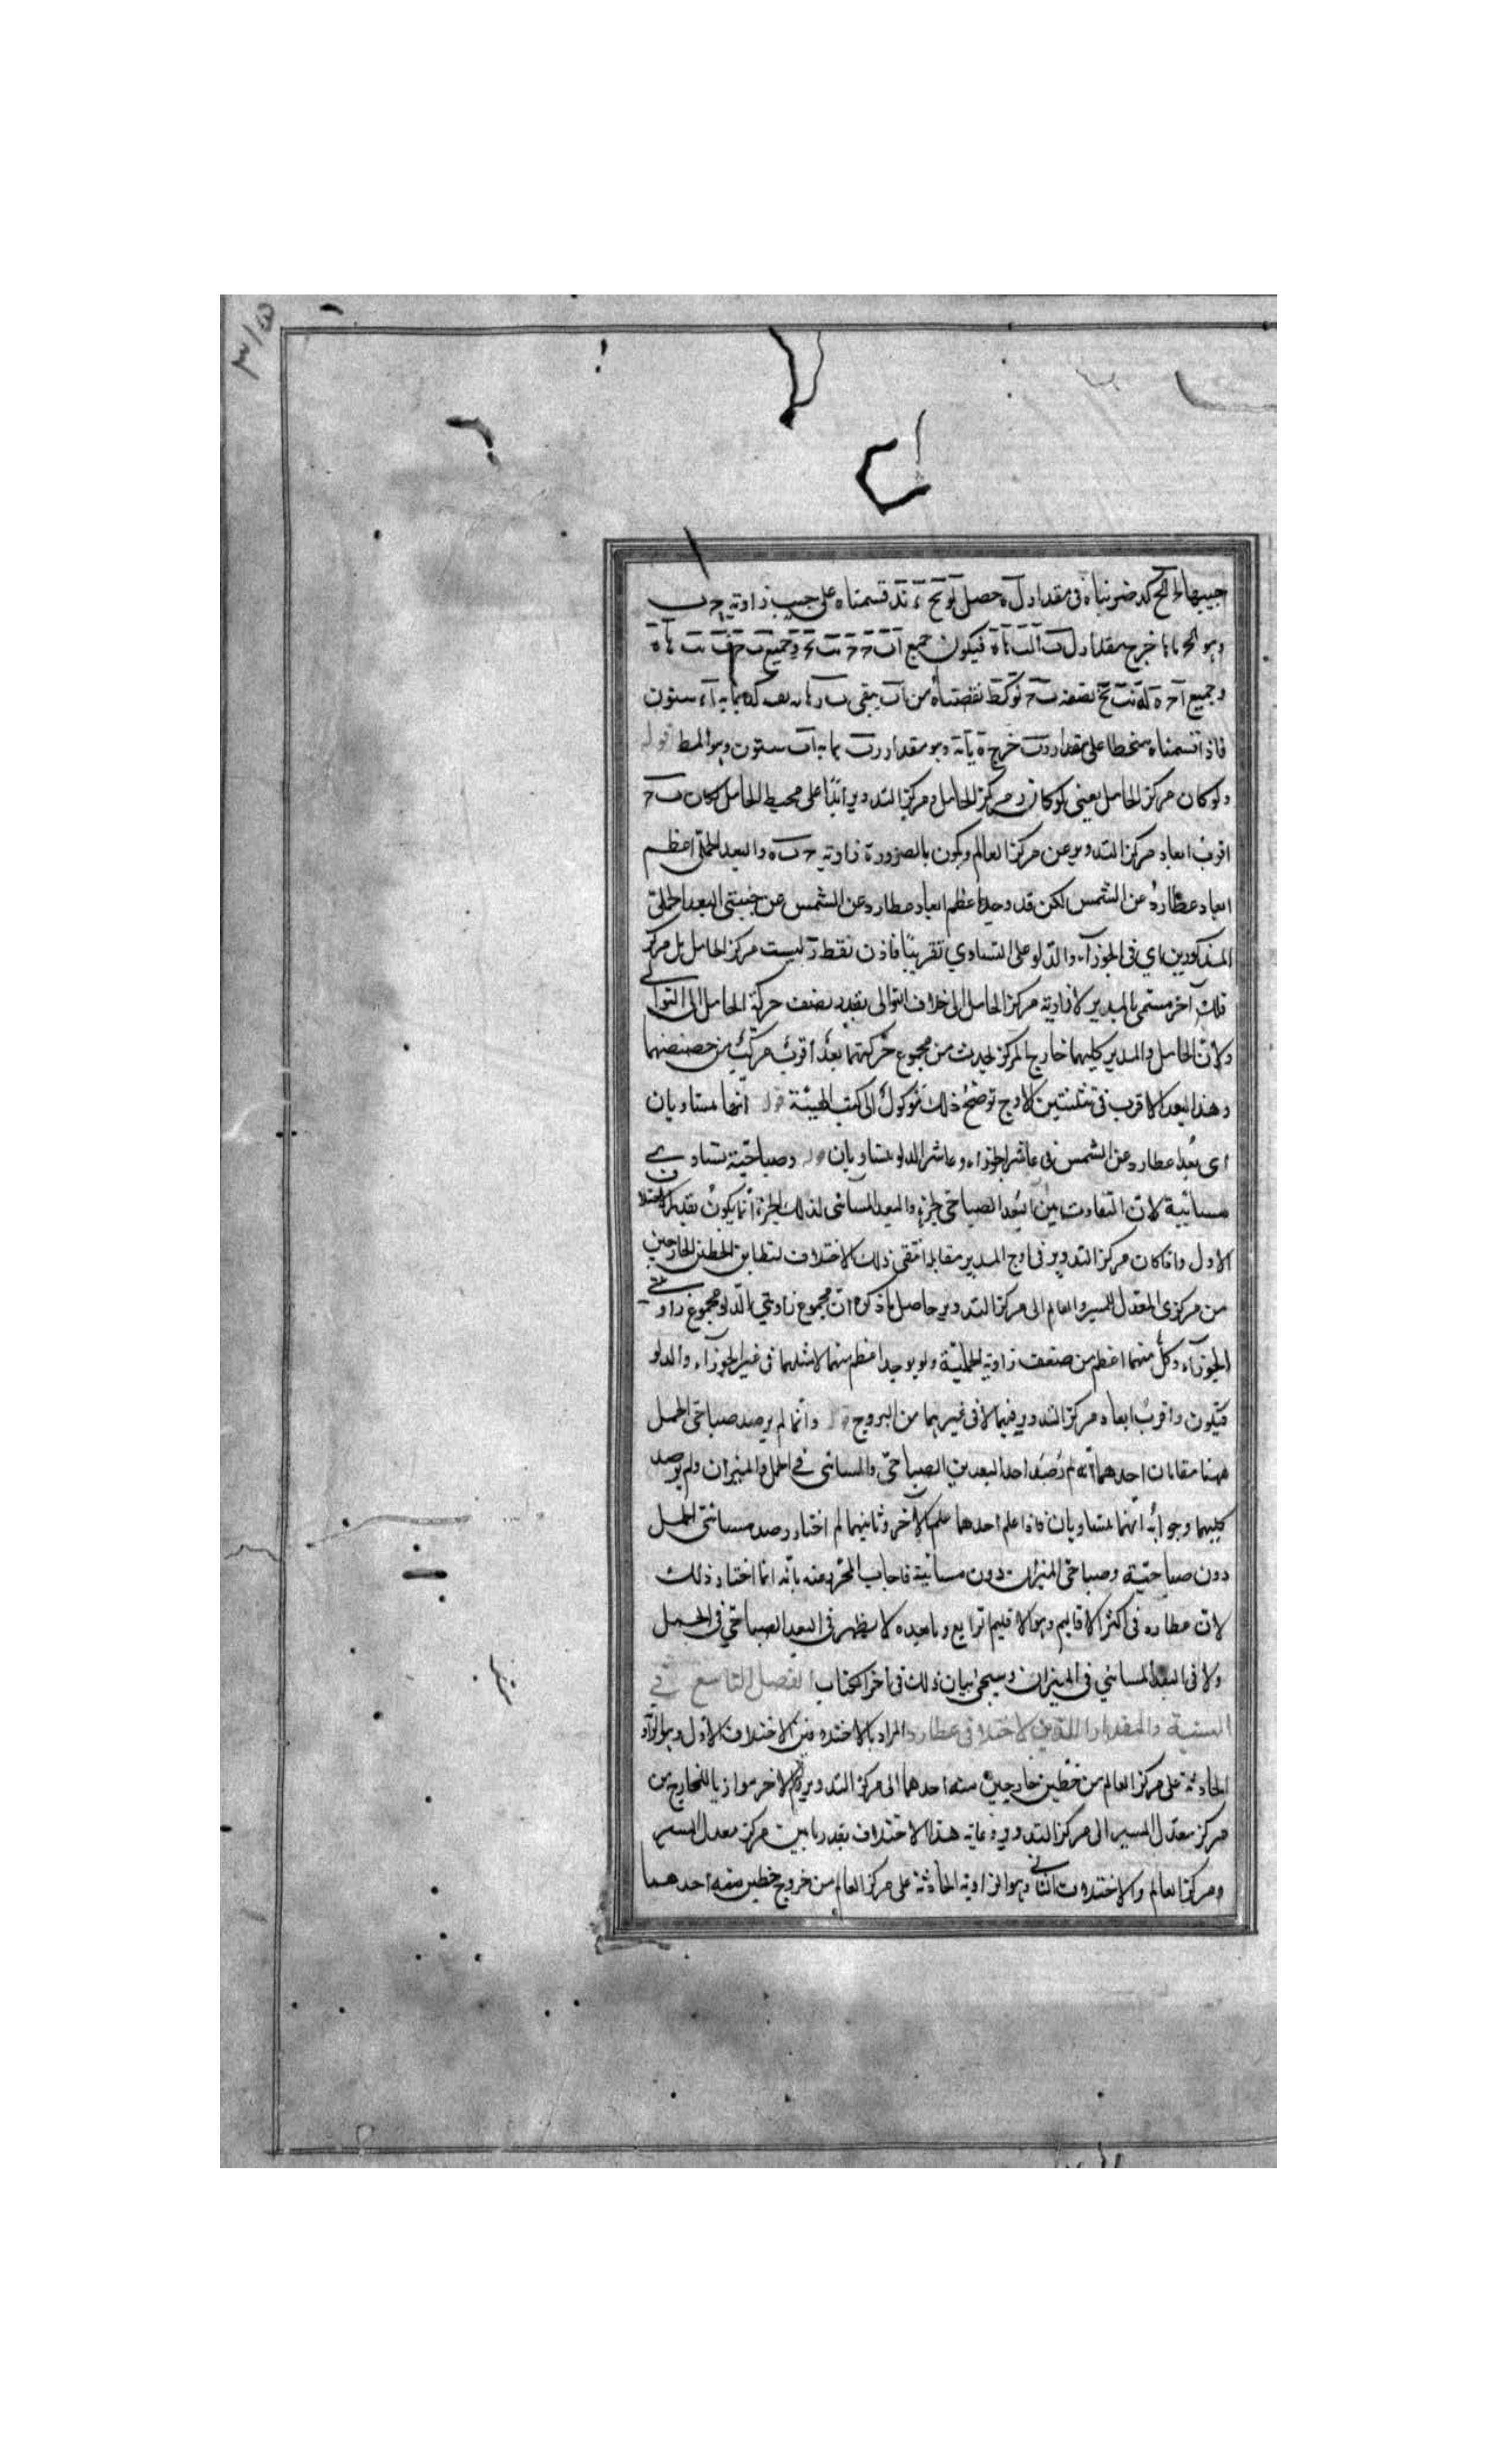 جيبها لح لح كد ضربناه فى مقدار ل ه حصل لو نح ء ند قسمناه على جيب زاوية ح ب
وهو لح خرج مقدار ل ب فيكون جميع اب
وجميع نصفه نقصناه من اب يبقى ستون
فاذا قسمناه منحطا على مقدار رب خرج وهو مقدار رب بما به اب ستون وهو المط قوله
ولو كان مركز الحامل يعنى لو كان ر مركز الحامل ومركز التدوير ابدا على محيط الحامل لكان ب ح
اقرب ابعاد مركز التدوير عن مركز العالم ويكون بالضرورة زاوية ح ب ه والبعد الحملى اعظم
ابعاد عطارد عن الشمس لكن قد وجد اعظم ابعاد عطارد عن الشمس عن جنبتى البعد الحملى
المذكورين اى فى الجوزآء والدلو على التساوي تقريبًا فاذن نقطة ر ليست مركز الحامل بل مركز
فلك آخر مسمى بالمدير لادارته مركز الحامل الى خلاف التوالى بقدر نصف حركة الحامل الى التوالى
ولان الحامل والمدير كليهما خارج المركز يحدث من مجموع حركتهما بعد اقرب مركب من حضيضهما
وهذا البعد الاقرب فى تثليثين الاوج توضيح ذلك موكول الى كتب الهيئة قوله انها متساويان
اى بعدا عطارد عن الشمس فى عاشر الجوزاء وعاشر الدلو متساويان قوله وصباحية تساوى
مسائية لان التفاوت بين البعد الصباحى لجزء والبعد المسائى لذلك الجزء انما يكون بقدر الاختلاف
الاول واذا كان مركز التدوير فى اوج المدير مقابله انتفى ذلك الاختلاف لتطابق الخطين الخارجين
من مركزى المعدل للمسير والعالم الى مركز التدوير حاصل ما ذكره ان مجموع زاويتي الدلو مجموع زاويتى
الجوزآء وكل منهما اعظم من ضعف زاوية الحملية ولم يوجد اعظم منهما لا مثلهما فى غير الجوزآء والدلو
فتكون اقرب ابعاد مركز التدوير فيهما لا فى غيرهما من البروج قوله وانما لم يرصد صباحى الحمل
ههنا مقامان احدهما انه لم رُصد احد البعدين الصباحى والمسائى فى الحمل والميزان ولم يرصد
كليهما وجوابه انهما متساويان فاذا علم احدهما علم الآخر وثانيهما لم اختار رصد مسائى الحمل
دون صباحية وصباحى الميزان دون مسائية فاجاب المحرر عنه بانه انما اختار ذلك
لان عطارد فى اكثر الاقاليم وهو الاقليم الرابع وما بعده لا يظهر فى البعد الصباحى فى الحمل
ولا فى البعد المسائي فى الميزان وسيجئ بيان ذلك فى اخر الكتاب الفصل التاسع فى
النسبة والمقدار اللذين لاختلافى عطارد المراد بالاختلافين الاختلاف الاول وهو الزاوية
الحادثة على مركز العالم من خطين خارجين منه احدهما الى مركز التدوير والاخر موازيا للخارج من
مركز معدل المسير الى مركز التدوير وغاية هذا الاختلاف بقدر ما بين مركز معدل المسير
ومركز العالم والاختلاف الثانى وهو الزاوية الحادثة على مركز العالم من خروج خطين منه احدهما